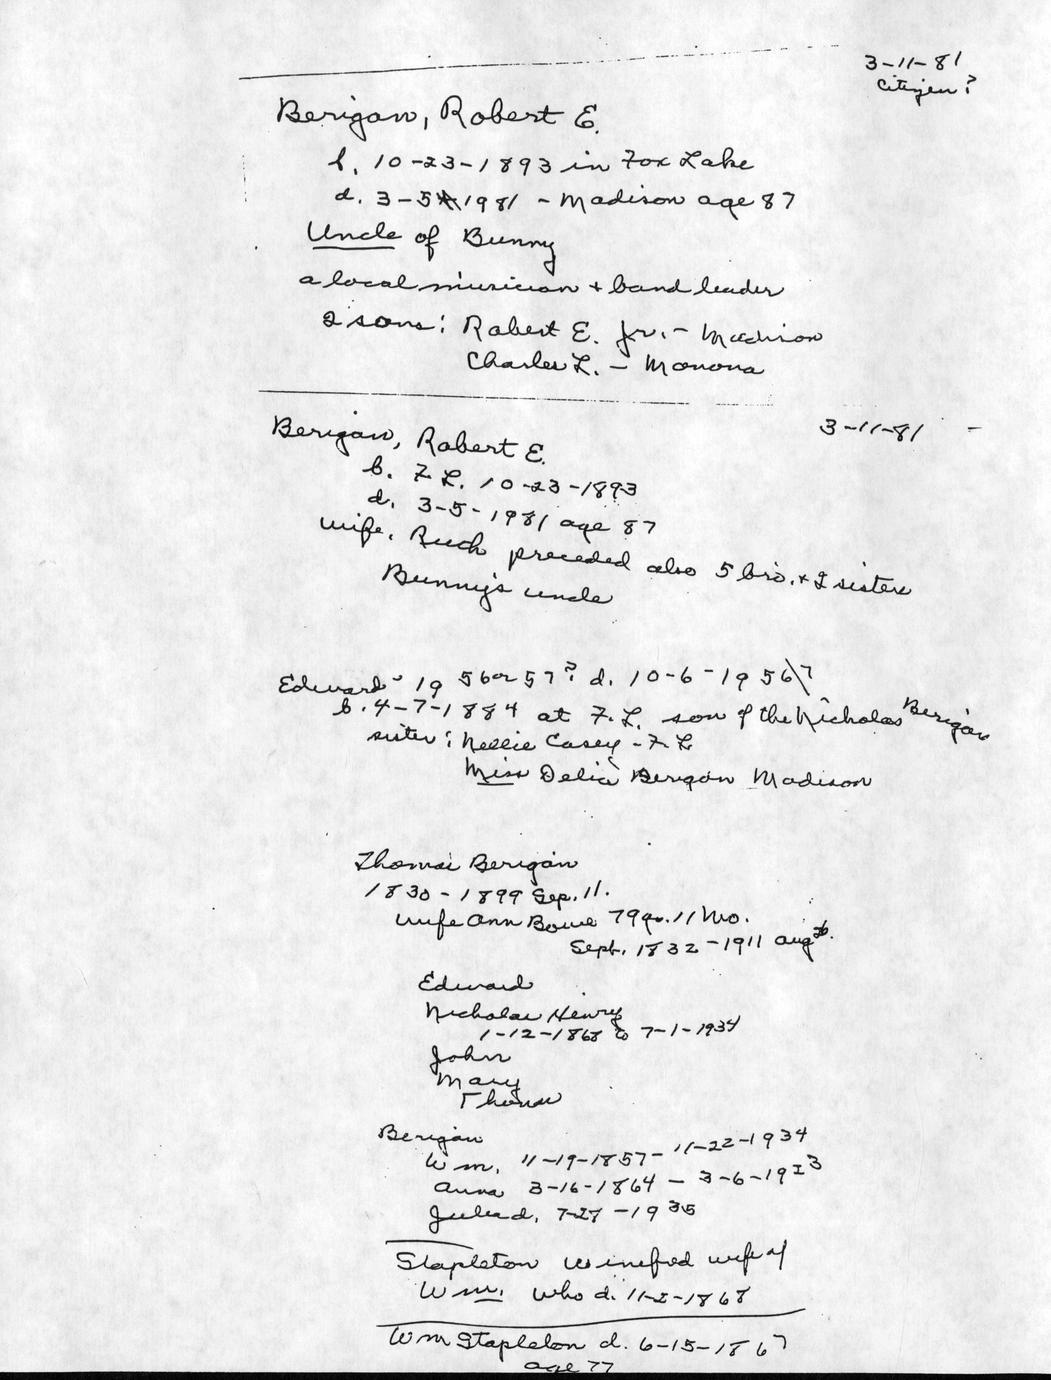 3-11-81
Citizen?
Berigan, Robert E.
b. 10-23-1893 in Fox Lake
d. 3-5 1981 - Madison age 87
Uncle of Bunny
a local musician + band leader
2 sons: Robert E. Jr. - Madison
Charles L. - Monona
3-11-81
Berigan, Robert E.
b. F.L. 10-23-1893
d. 3-5-1981 age 87
wife, Ruth preceded also 5 bro. + 2 sisters
Bunny's uncle
Edward - 19 56 or 57? d. 10-6-1956\7
b. 4-7-1884 at F.L. son of the Nicholas Berigan
sister: Nellie Casey - F.L
Miss Delia Berigan Madison
Thomas Berigan
1830 - 1899 Sep. 11.
wife Ann Bowe 79 yr. 11 Mo.
Sept. 1832 - 1911 Aug 26.
Edward
Nicholas Henry
1-12-1868 to 7-1-1934
John
Mary
Thomas
Berigan
Wm. 11-19-1857 - 11-22-1934
Anna 3-16-1864 - 3-6-1923
Julia d. 7-27-1935
Stapleton Winefred wife of
Wm. who d. 11-2-1868
Wm Stapleton d. 6-15-1867
age 77